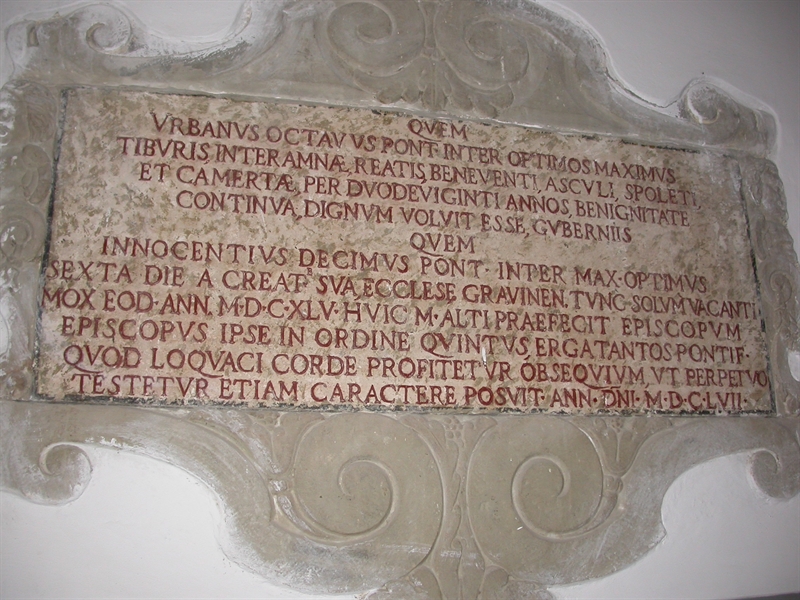 QVEM
VRBANVS OCTAVVS PONT· INTER OPTIMOS MAXIMVS
TIBVRIS, INTERAMNÆ, REATIS, BENEVENTI, ASCVLI, SPOLETI,
ET CAMERTÆ, PER DVODEVIGINTI ANNOS, BENIGNITATE
CONTINVA, DIGNVM VOLVIT ESSE, GVBERNIIS
QVEM
INNOCENTIVS DECIMVS PONT· INTER MAX· OPTIMVS
SEXTA DIE A CREATE SVA, ECCLESE GRAVINEN. TVNC· SOLVM VACANTI
MOX EOD· ANN. M·D·C·XLV· HVIC M· ALTI PRAEFECIT EPISCOPVM
EPISCOPVS IPSE IN ORDINE QVINTVS, ERGA TANTOS PONTIF·
QVOD LOQVACI CORDE PROFITETVR OBSEQVIVM, VT PERPETVO
TESTETVR ETIAM CARACTERE POSVIT· ANN· DNI· M·D·C·LVII·